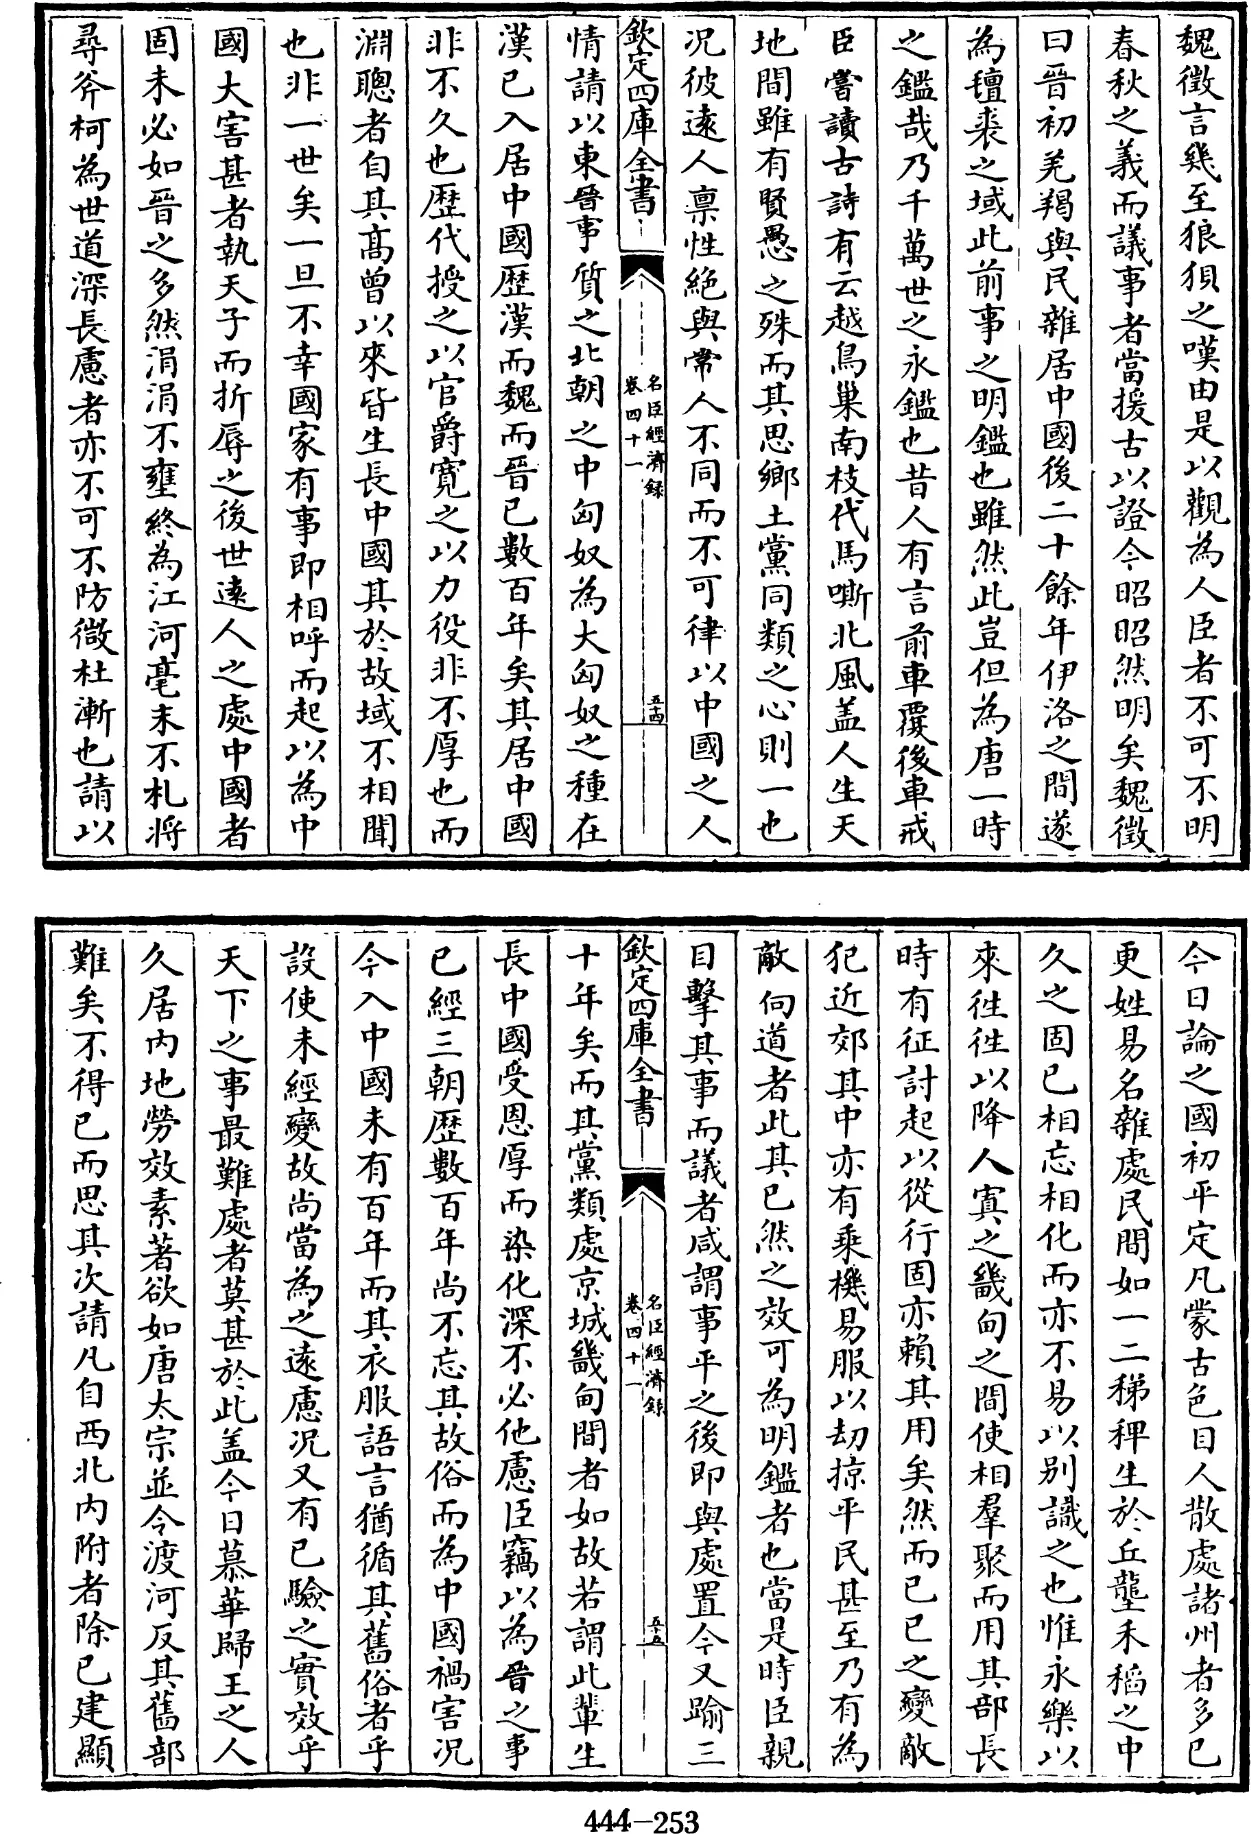 魏徵言幾至狼狽之嘆由是以觀為人臣者不可不明
春秋之義而議事者當援古以證今昭昭然明矣魏徵
曰晉初羌羯與民雜居中國後二十餘年伊洛之間遂
為氊裘之域此前事之明鑑也雖然此豈但為唐一時
之鑑哉乃千萬世之永鑑也昔人有言前車覆後車戒
臣嘗讀古詩有云越鳥巢南枝代馬嘶北風盖人生天
地間雖有賢愚之殊而其思鄉土黨同類之心則一也
况彼遠人禀性絶與常人不同而不可律以中國之人
欽定四庫全書
名臣經濟録
卷四十一
五十四
情請以東晉事質之北朝之中匈奴為大匈奴之種在
漢已入居中國歴漢而魏而晉已數百年矣其居中國
非不久也歴代授之以官爵寛之以力役非不厚也而
淵聰者自其髙曾以來皆生長中國其於故域不相聞
也非一世矣一旦不幸國家有事即相呼而起以為中
國大害甚者執天子而折辱之後世逺人之處中國者
固未必如晉之多然涓涓不壅終為江河毫末不札将
尋斧柯為世道深長慮者亦不可不防微杜漸也請以
今日論之國初平定凡蒙古色目人散處諸州者多已
更姓易名雜處民間如一二稊稗生於丘壟禾稻之中
久之固已相忘相化而亦不易以别識之也惟永樂以
來往往以降人寘之畿甸之間使相羣聚而用其部長
時有征討起以從行固亦賴其用矣然而己巳之變敵
犯近郊其中亦有乘機易服以刧掠平民甚至乃有為
敵向道者此其已然之效可為明鑑者也當是時臣親
目擊其事而議者咸謂事平之後即與處置今又踰三
欽定四庫全書
名臣經濟録
卷四十一
五十五
十年矣而其黨類處京城畿甸間者如故若謂此輩生
長中國受恩厚而染化深不必他慮臣竊以為晉之事
已經三朝歴數百年尚不忘其故俗而為中國禍害况
今入中國未有百年而其衣服語言猶循其舊俗者乎
設使未經變故尚當為之遠慮况又有已驗之實效乎
天下之事最難處者莫甚於此盖今日慕華歸王之人
久居内地勞效素著欲如唐太宗並令渡河反其舊部
難矣不得已而思其次請凡自西北内附者除已建顯
444-253